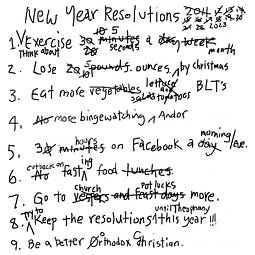 New Year Resolutions 2011
2023
10 5
1. Exercise 30 minutes a day week
Think about 20 seconds month
2. Lose 20 pounds. ounces, by christmas
5
10
lettuce and
3. Eat more vegetables tomatoes BLT's
4. No more bingewatching Andor
hours morning/eve.
5. 30 minutes on Facebook a day
cut back on ing
6. No fast food lunches
church potlucks
7. Go to vespers and feast days more.
try to until Theophany
8. Keep the resolutions this year !!!
9. Be a better Orthodox Christian.